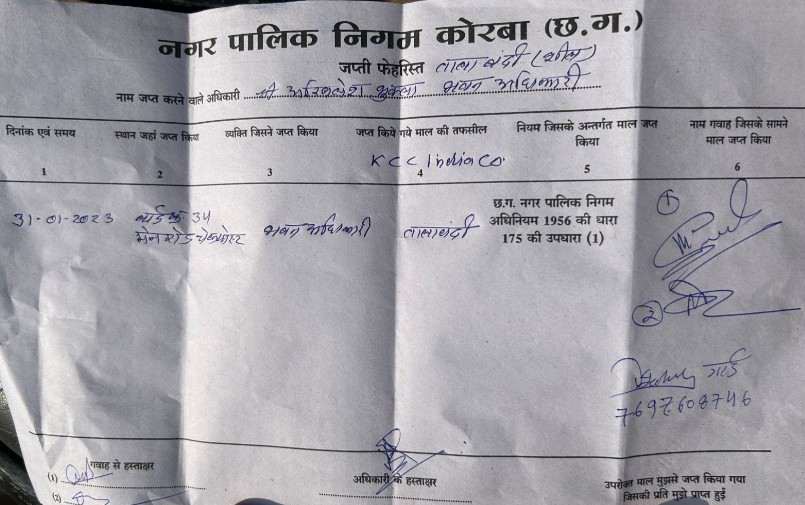 नगर पालिक निगम कोरबा (छ.ग.)
जप्ती फेहरिस्त ताला बंदी (शील)
नाम जप्त करने वाले अधिकारी श्री अखिलेश शुक्ला भवन अधिकारी
दिनांक एवं समय स्थान जहां जप्त किया व्यक्ति जिसने जप्त किया जप्त किये गये माल की तफसील नियम जिसके अन्तर्गत माल जप्त किया नाम गवाह जिसके सामने माल जप्त किया
1 2 3 4 5 6
KCC India Co.
31-01-2023 वार्ड क्र 34 मेन रोड चेकपोस्ट भवन अधिकारी तालाबंदी छ.ग. नगर पालिक निगम अधिनियम 1956 की धारा 175 की उपधारा (1)
①
②
गार्ड
7697608746
गवाह से हस्ताक्षर
(1)
(2)
अधिकारी के हस्ताक्षर
उपरोक्त माल मुझसे जप्त किया गया
जिसकी प्रति मुझे प्राप्त हुई